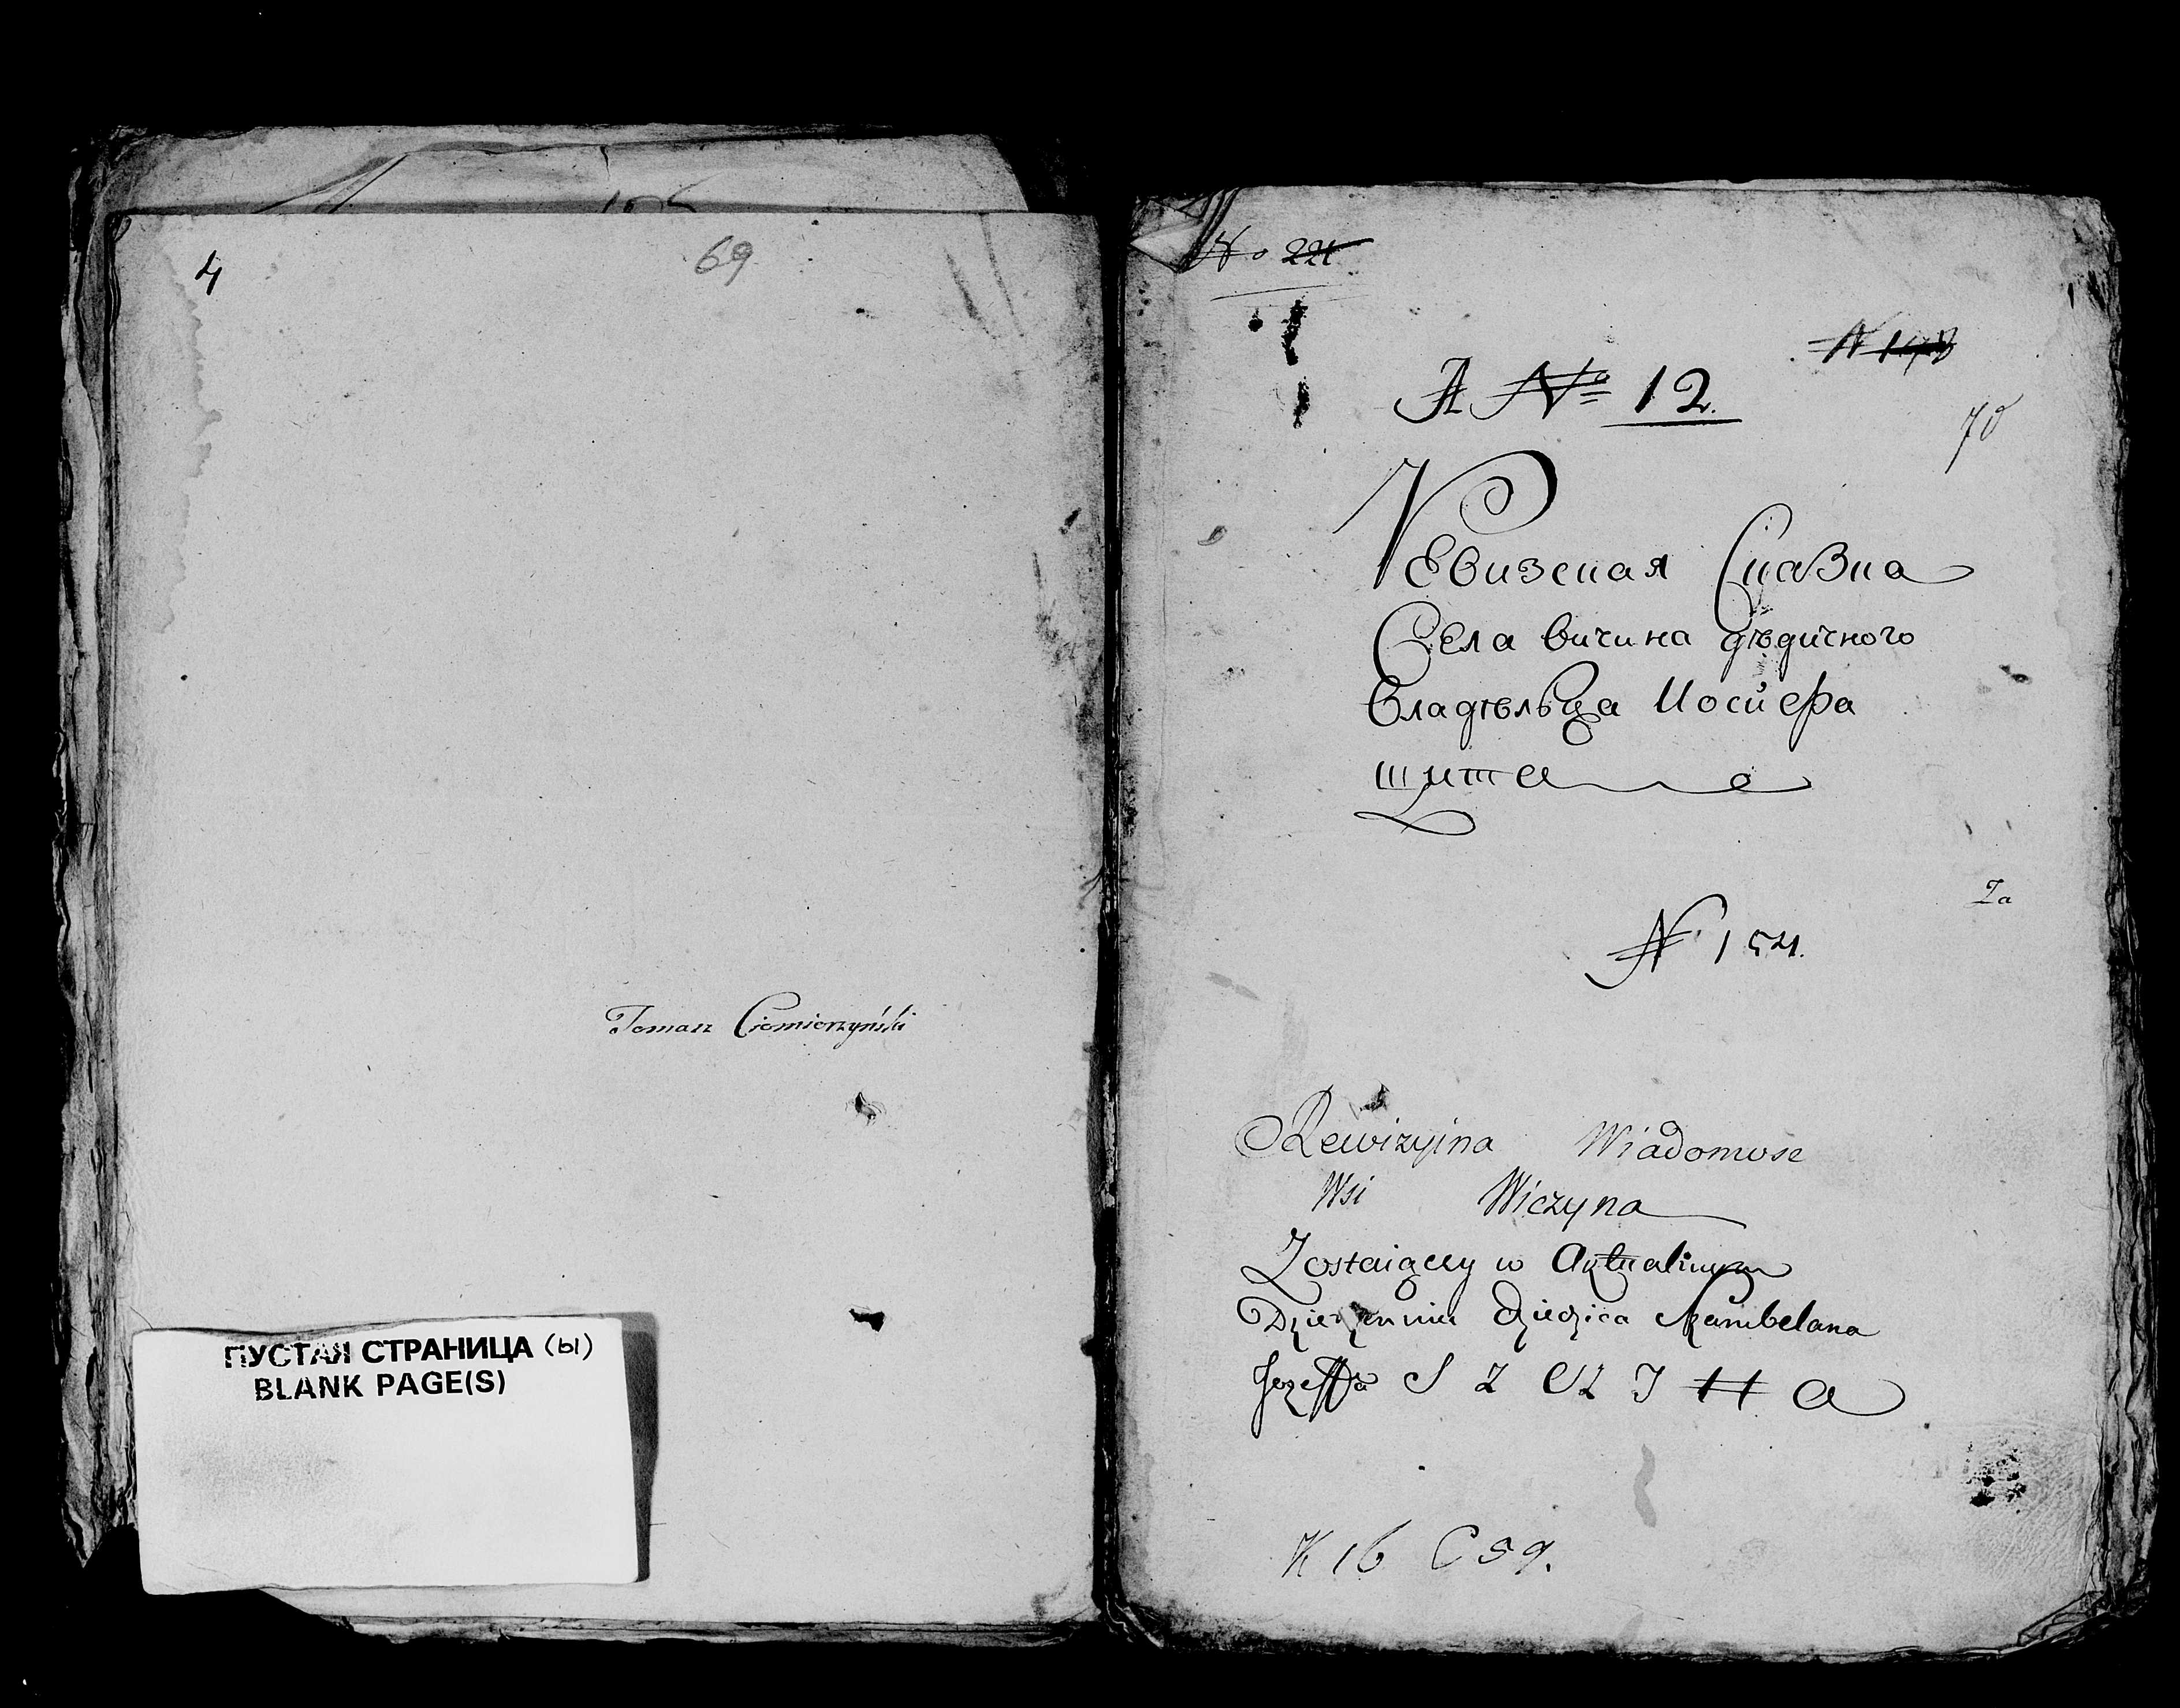 4
69
Tomasz Ciemierzyński
ПУСТАЯ СТРАНИЦА (ы)
BLANK PAGE(S)
No 221
N 143
A № 12.
70
Ревизская Сказка
Села вичина дѣдичного
владѣльца Иосифа
щита
Za
N 154.
Rewizyina Wiadomosc
Wsi Wiczyna
Zostaiącey w Aktualnym
Dziedzica Szambelana
Jozeffa SZCZITTA
K 16 C 59.